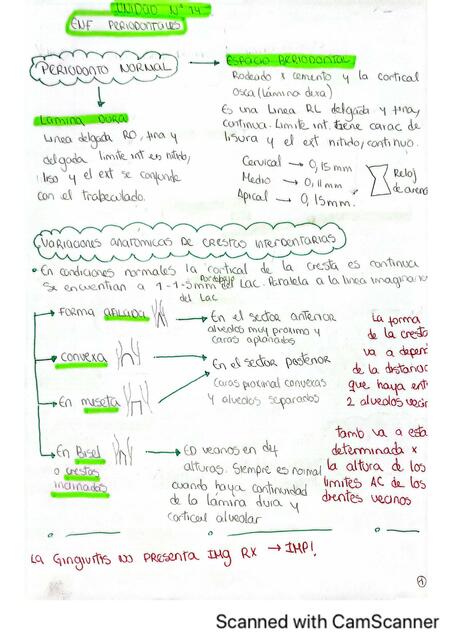 UNIDAD N° 14
ENF PERIODONTALES
PERIODONTO NORMAL
ESPACIO PERIODONTAL
Rodeado x cemento y la cortical
osea (lámina dura)
Es una linea RL delgada y fina,
continua. Limite int. tiene carac de
lisura y el ext nitido, continuo.
Cervical → 0,15mm
Medio → 0,11mm
Apical → 0,15mm.
Reloj
de arena
LAMINA DURA
Linea delgada RO, fina y
delgada limite int es nitido,
liso y el ext se confunde
con el trabeculado.
VARIACIONES ANATOMICAS DE CRESTAS INTERDENTARIAS
• En condiciones normales la cortical de la cresta es continua
Se encuentran a 1-1-5mm por debajo del LAC. Paralela a la linea imaginaria
del Lac
→ FORMA AFILADA
→ En el sector anterior
alveolos muy proximo y
caras aplanadas
→ CONVEXA
→ En el sector posterior
Caras proximal convexas
y alveolos separados
→ En meseta
→ En Bisel
o crestas
inclinadas
→ ED vecinos en dif
alturas. Siempre es normal
cuando haya continuidad
de la lámina dura y
cortical alveolar
La forma
de la cresta
va a depen
de la distanc
que haya ent
2 alveolos vecin
tamb va a esta
determinada x
la altura de los
limites AC de los
dientes vecinos
LA Gingivitis NO PRESENTA IMG RX → IMP!
1
Scanned with CamScanner